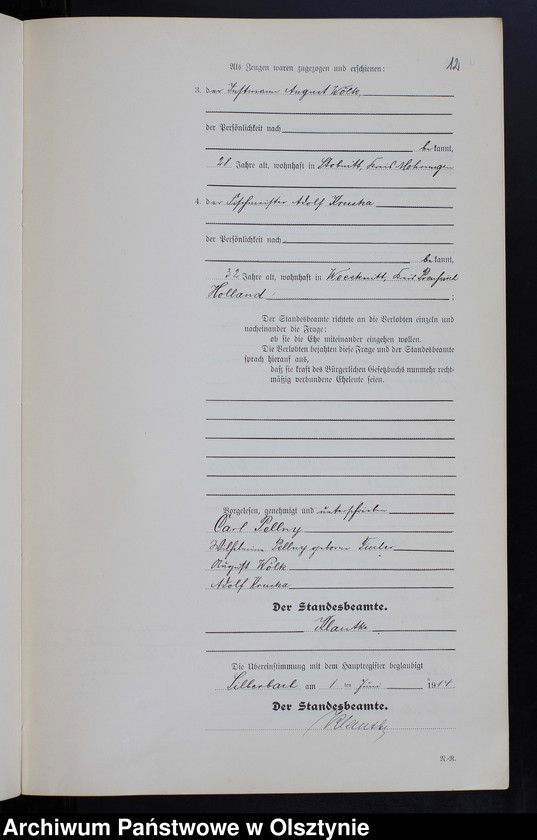 12
Als Zeugen waren zugezogen und erschienen:
3. der Instmann August Wölk
der Persönlichkeit nach
bekannt,
28 Jahre alt, wohnhaft in Stobnitt, Kreis Mohrungen
4. der Adolf Kruska
der Persönlichkeit nach
bekannt,
32 Jahre alt, wohnhaft in Weeskenitt, Kreis Preußisch
Holland ;
Der Standesbeamte richtete an die Verlobten einzeln und
nacheinander die Frage:
ob sie die Ehe miteinander eingehen wollen.
Die Verlobten bejahten diese Frage und der Standesbeamte
sprach hierauf aus,
daß sie kraft des Bürgerlichen Gesetzbuchs nunmehr recht-
mäßig verbundene Eheleute seien.
Vorgelesen, genehmigt und unterschrieben
Carl Pellny
Wilhelmine Pellny geborne
August Wölk
Adolf Kruska
Der Standesbeamte.
Klautke
Die Übereinstimmung mit dem Hauptregister beglaubigt
Silberbach am 1 ten Juni 1914.
Der Standesbeamte.
Klautke
Archiwum Państwowe w Olsztynie